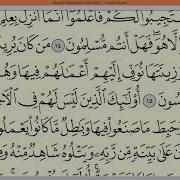 ستجيبوا لكم فاعلموا أنما أنزل بعلم
إلا هو فهل أنتم مسلمون ١٤ من كان يريد
زينتها نوف إليهم أعملهم فيها وهم
١٥ أولئك الذين ليس لهم في
وحبط ما صنعوا فيها وبطل ما كانوا
على بينة من ربه ويتلوه شاهد منه